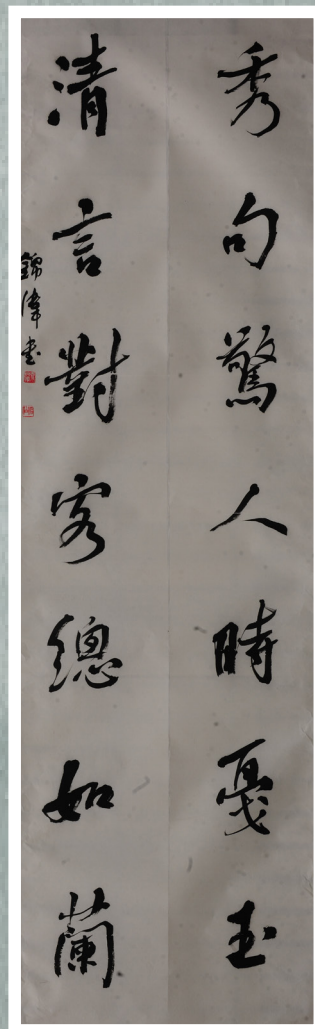 秀句驚人時戛玉
清言對客總如蘭
錦津書